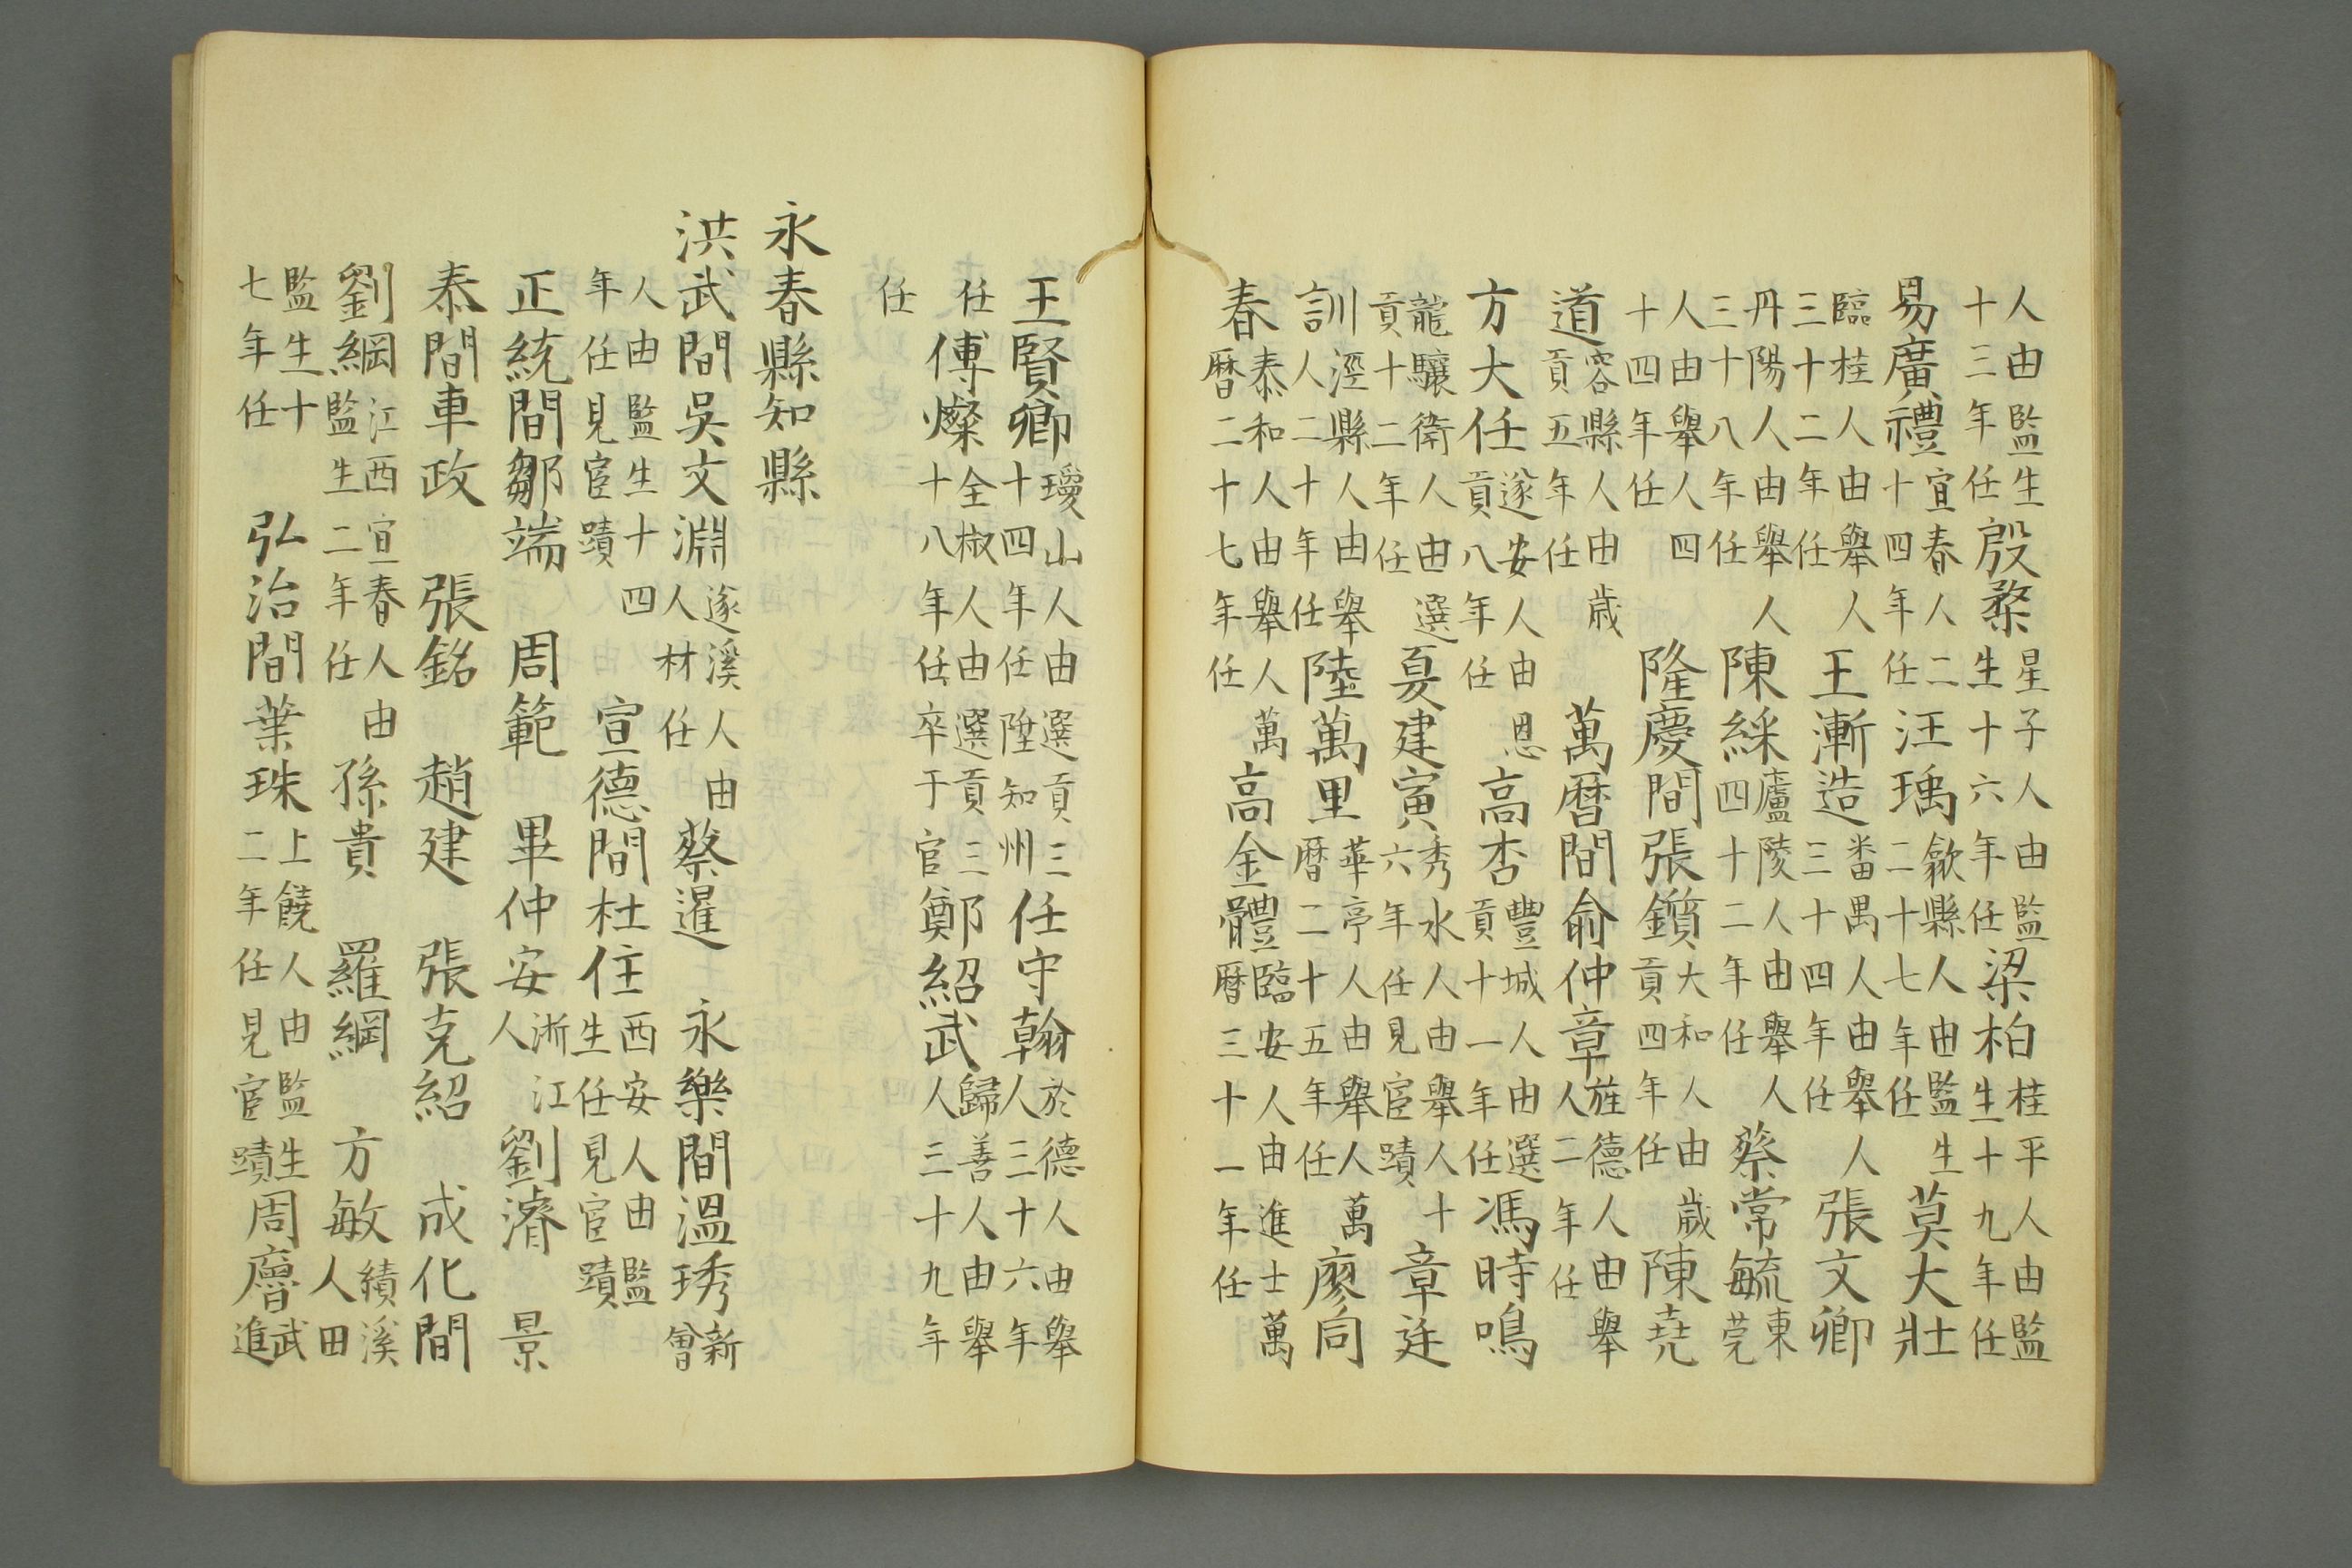 人由監生十三年任殷楘星子人由監生十六年任梁柏桂平人由監生十九年任
易廣禮宜春人二十四年任汪瑀歙縣人由監生二十七年任莫大壯
臨桂人由舉人三十二年任王漸造番禺人由舉人三十四年任張文卿
丹陽人由舉人三十八年任陳綵廬陵人由舉人四十二年任蔡常毓東莞
人由舉人四十四年任 隆慶間張鑕大和人由歲貢四年任陳堯
道容縣人由歲貢五年任 萬曆間俞仲章旌德人由舉人二年任
方大任遂安人由恩貢八年任高杏豐城人由選貢十一年任馮時鳴
龍驤衛人由選貢十二年任夏建寅秀水人由舉人十六年任見宦蹟章廷
訓涇縣人由舉人二十年任陸萬里華亭人由舉人萬曆二十五年任廖同
春泰和人由舉人萬曆二十七年任高金體臨安人由進士萬曆三十一年任
王賢卿璦山人由選貢三十四年任陞知州任守翰於德人由舉人三十六年
任傅燦全椒人由選貢三十八年任卒于官鄭紹武歸善人由舉人三十九年
任
永春縣知縣
洪武間吳文淵遂溪人由人材任蔡暹 永樂間溫琇新會
人由監生十四年任見宦蹟 宣德間杜住西安人由監生任見宦蹟
正統間鄒端 周範 畢仲安浙江人劉濬 景
泰間車政 張銘 趙建 張克紹 成化間
劉綱江西宜春人由監生二年任孫貴 羅綱 方敏績溪人田
監生十七年任 弘治間葉珠上饒人由監生二年任見宦蹟周廥武進